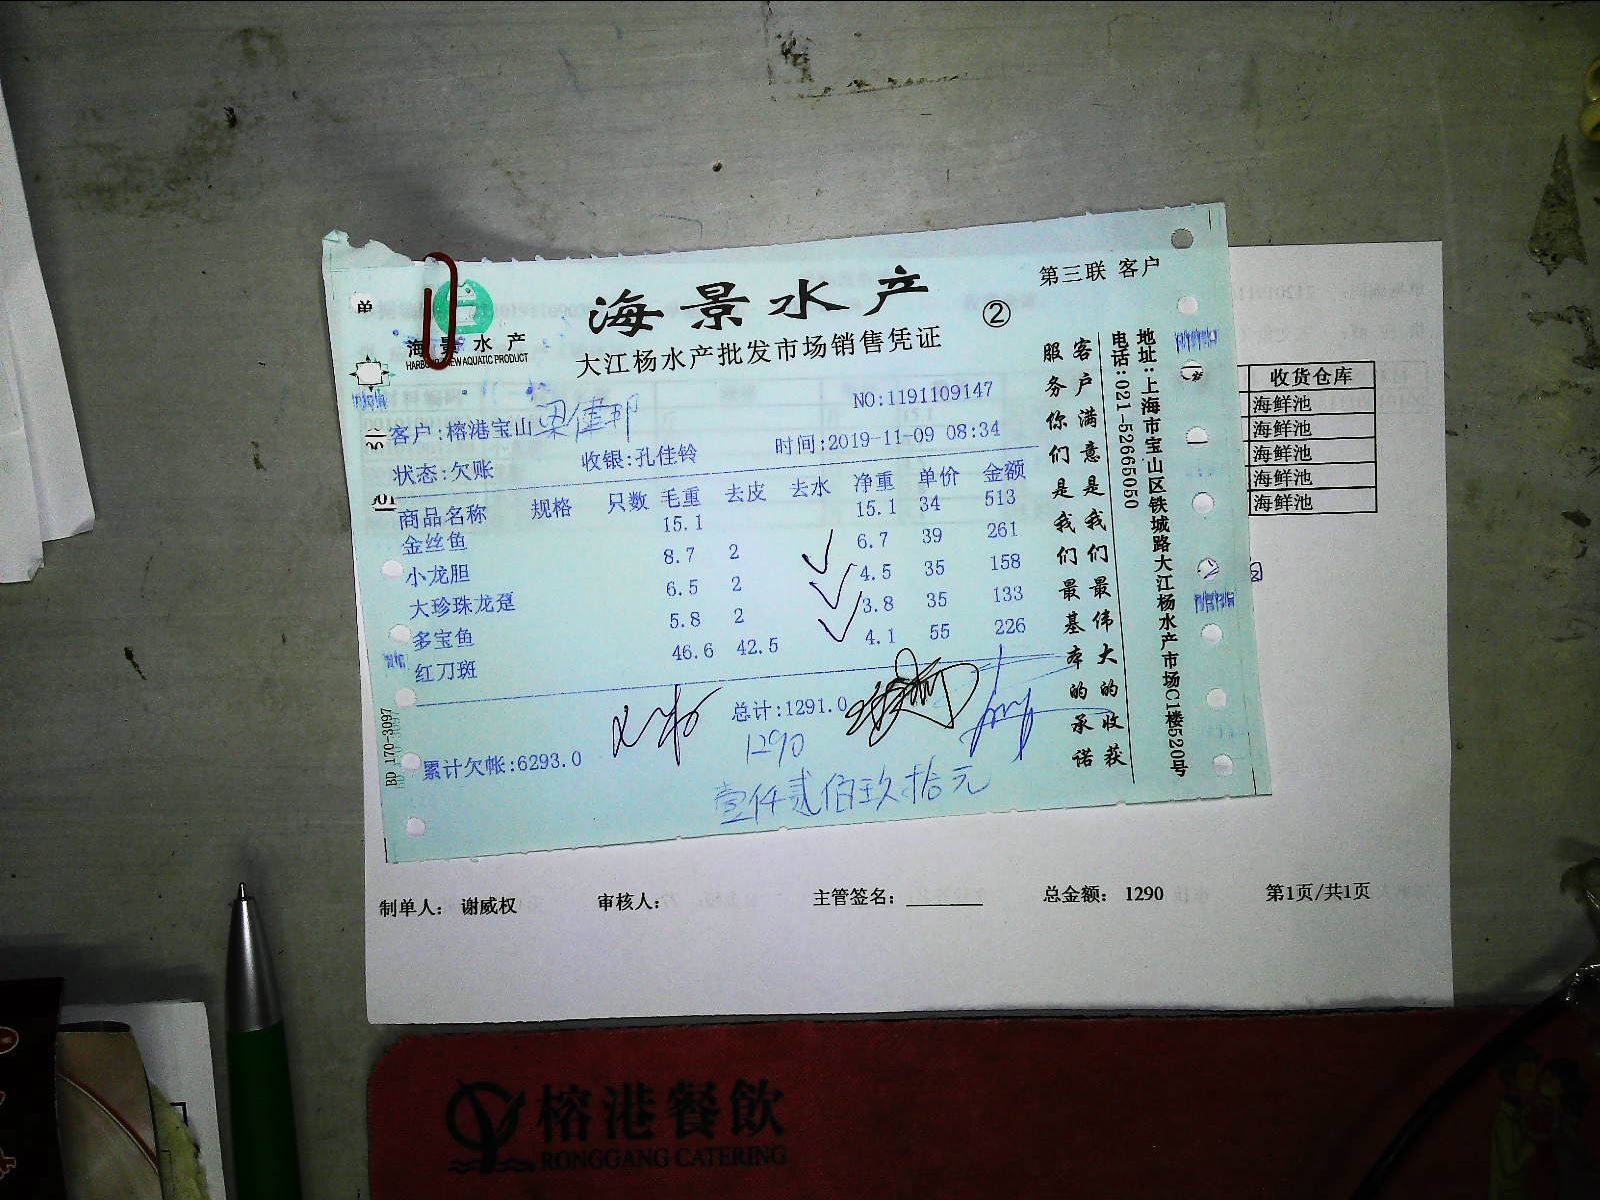 单
海景水产
HARBOUR VIEW AQUATIC PRODUCT
海景水产
②
第三联 客户
大江杨水产批发市场销售凭证
NO:1191109147
客户:榕港宝山 梁健邦
状态:欠账 收银:孔佳铃 时间:2019-11-09 08:34
商品名称 规格 只数 毛重 去皮 去水 净重 单价 金额
金丝鱼 15.1 15.1 34 513
小龙胆 8.7 2 6.7 39 261
大珍珠龙趸 6.5 2 4.5 35 158
多宝鱼 5.8 2 3.8 35 133
红刀斑 46.6 42.5 4.1 55 226
总计:1291.0
1290
累计欠帐:6293.0
壹仟贰佰玖拾元
客户满意是我们最伟大的收获
服务你们是我们最基本的承诺
地址:上海市宝山区铁城路大江杨水产市场C1楼520号
电话:021-52665050
BD 170-3097
收货仓库
海鲜池
海鲜池
海鲜池
海鲜池
海鲜池
制单人: 谢威权 审核人: 主管签名: 总金额: 1290 第1页/共1页
榕港餐飲
RONGGANG CATERING